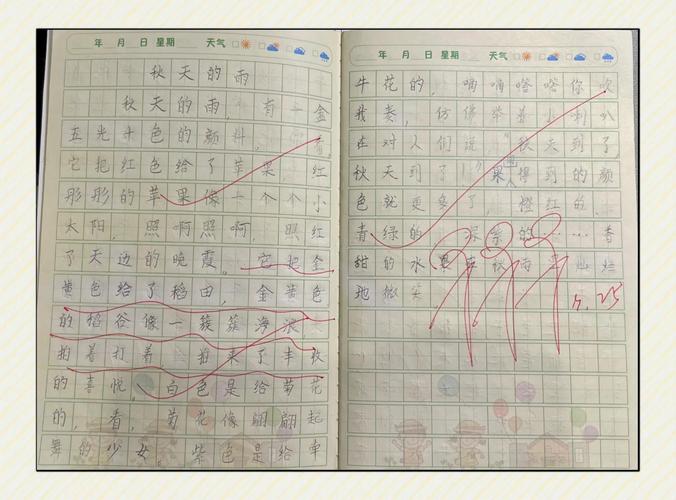 年 月 日 星期 天气
秋天的雨
秋天的雨，有一金
五光十色的颜料，看，
它把红色给了苹果，红
彤彤的苹果像一个个小
太阳，照啊照啊，照红
了天边的晚霞。它把金
黄色给了稻田，金黄色
的稻谷像一簇簇海浪
拍着打着，拍来了丰收
的喜悦。白色是给菊花
的，看，菊花像翩翩起
舞的少女。紫色是给牵
年 月 日 星期 天气
牛花的，嘀嘀嗒嗒你吹
我奏，仿佛举着小喇叭
在对人们说："秋天到了
秋天到了！"果得到的颜
色就更多了，橙红的、
青绿的、的……香
甜的水果在秋雨里灿烂
地微笑
9.25